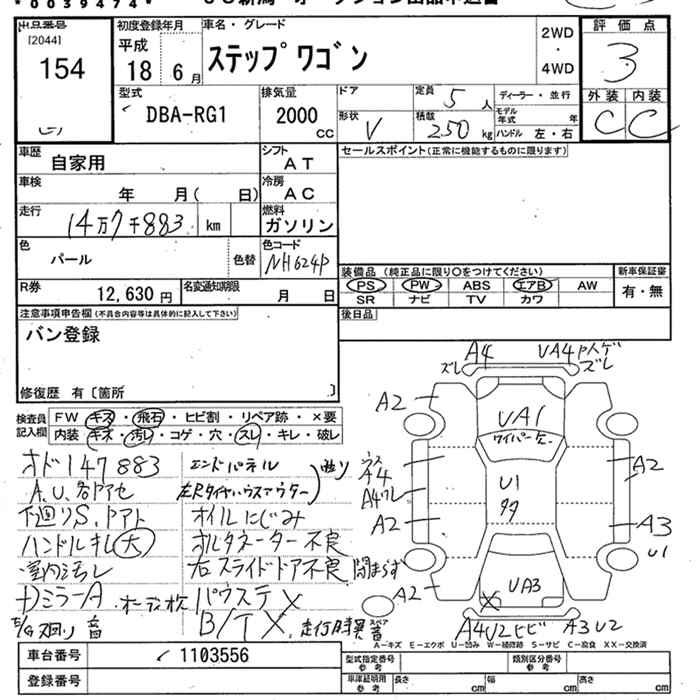 *0039474*
出品番号
[2044]
154
初度登録年月
平成
18 6月
車名・グレード
ステップワゴン
2WD
・
4WD
評価点
3
外装 内装
C C
型式
DBA-RG1
排気量
2000
CC
ドア
定員 5 人
ディーラー・並行
モデル年式 年
形状 V
積載 250 kg
ハンドル 左・右
車歴
自家用
シフト
AT
セールスポイント(正常に機能するものに限ります)
車検
年 月( 日)
冷房
AC
走行
14万7千883 km
燃料
ガソリン
色
パール
色替
色コード
NH624P
装備品 (純正品に限り○をつけてください)
新車保証書
PS PW ABS エアB AW
SR ナビ TV カワ
有・無
R券
12,630円
名変通知期限
月 日
後日品
注意事項申告欄(不具合内容等は具体的に記入して下さい)
バン登録
修復歴 有〔箇所 〕
検査員
記入欄
FW キズ・飛石・ヒビ割・リペア跡・×要
内装 キズ・汚レ・コゲ・穴・スレ・キレ・破レ
オド147883
ハンドルキレ 大
室内汚レ
ドミラーA
エンドパネル
左Rタイヤハウスアウター
曲り
オイルにじみ
オルタネーター不良
右スライドドア不良 閉まらず
パワステ×
B/T×
A4
ズレ
UA4
ズレ
A2
UA1
ワイパーキズ
A4
A4ワレ
A2
U1
多
A2
A3
U1
A2
UA3
×
スペア
A4U2ヒビ
A3U2
A-キズ E-エクボ U-凹み W-補修跡 S-サビ C-腐食 XX-交換済
車台番号
1103556
登録番号
型式指定番号
参考
類別区分番号
参考
車庫証明用
参考
長さ cm
幅 cm
高さ cm